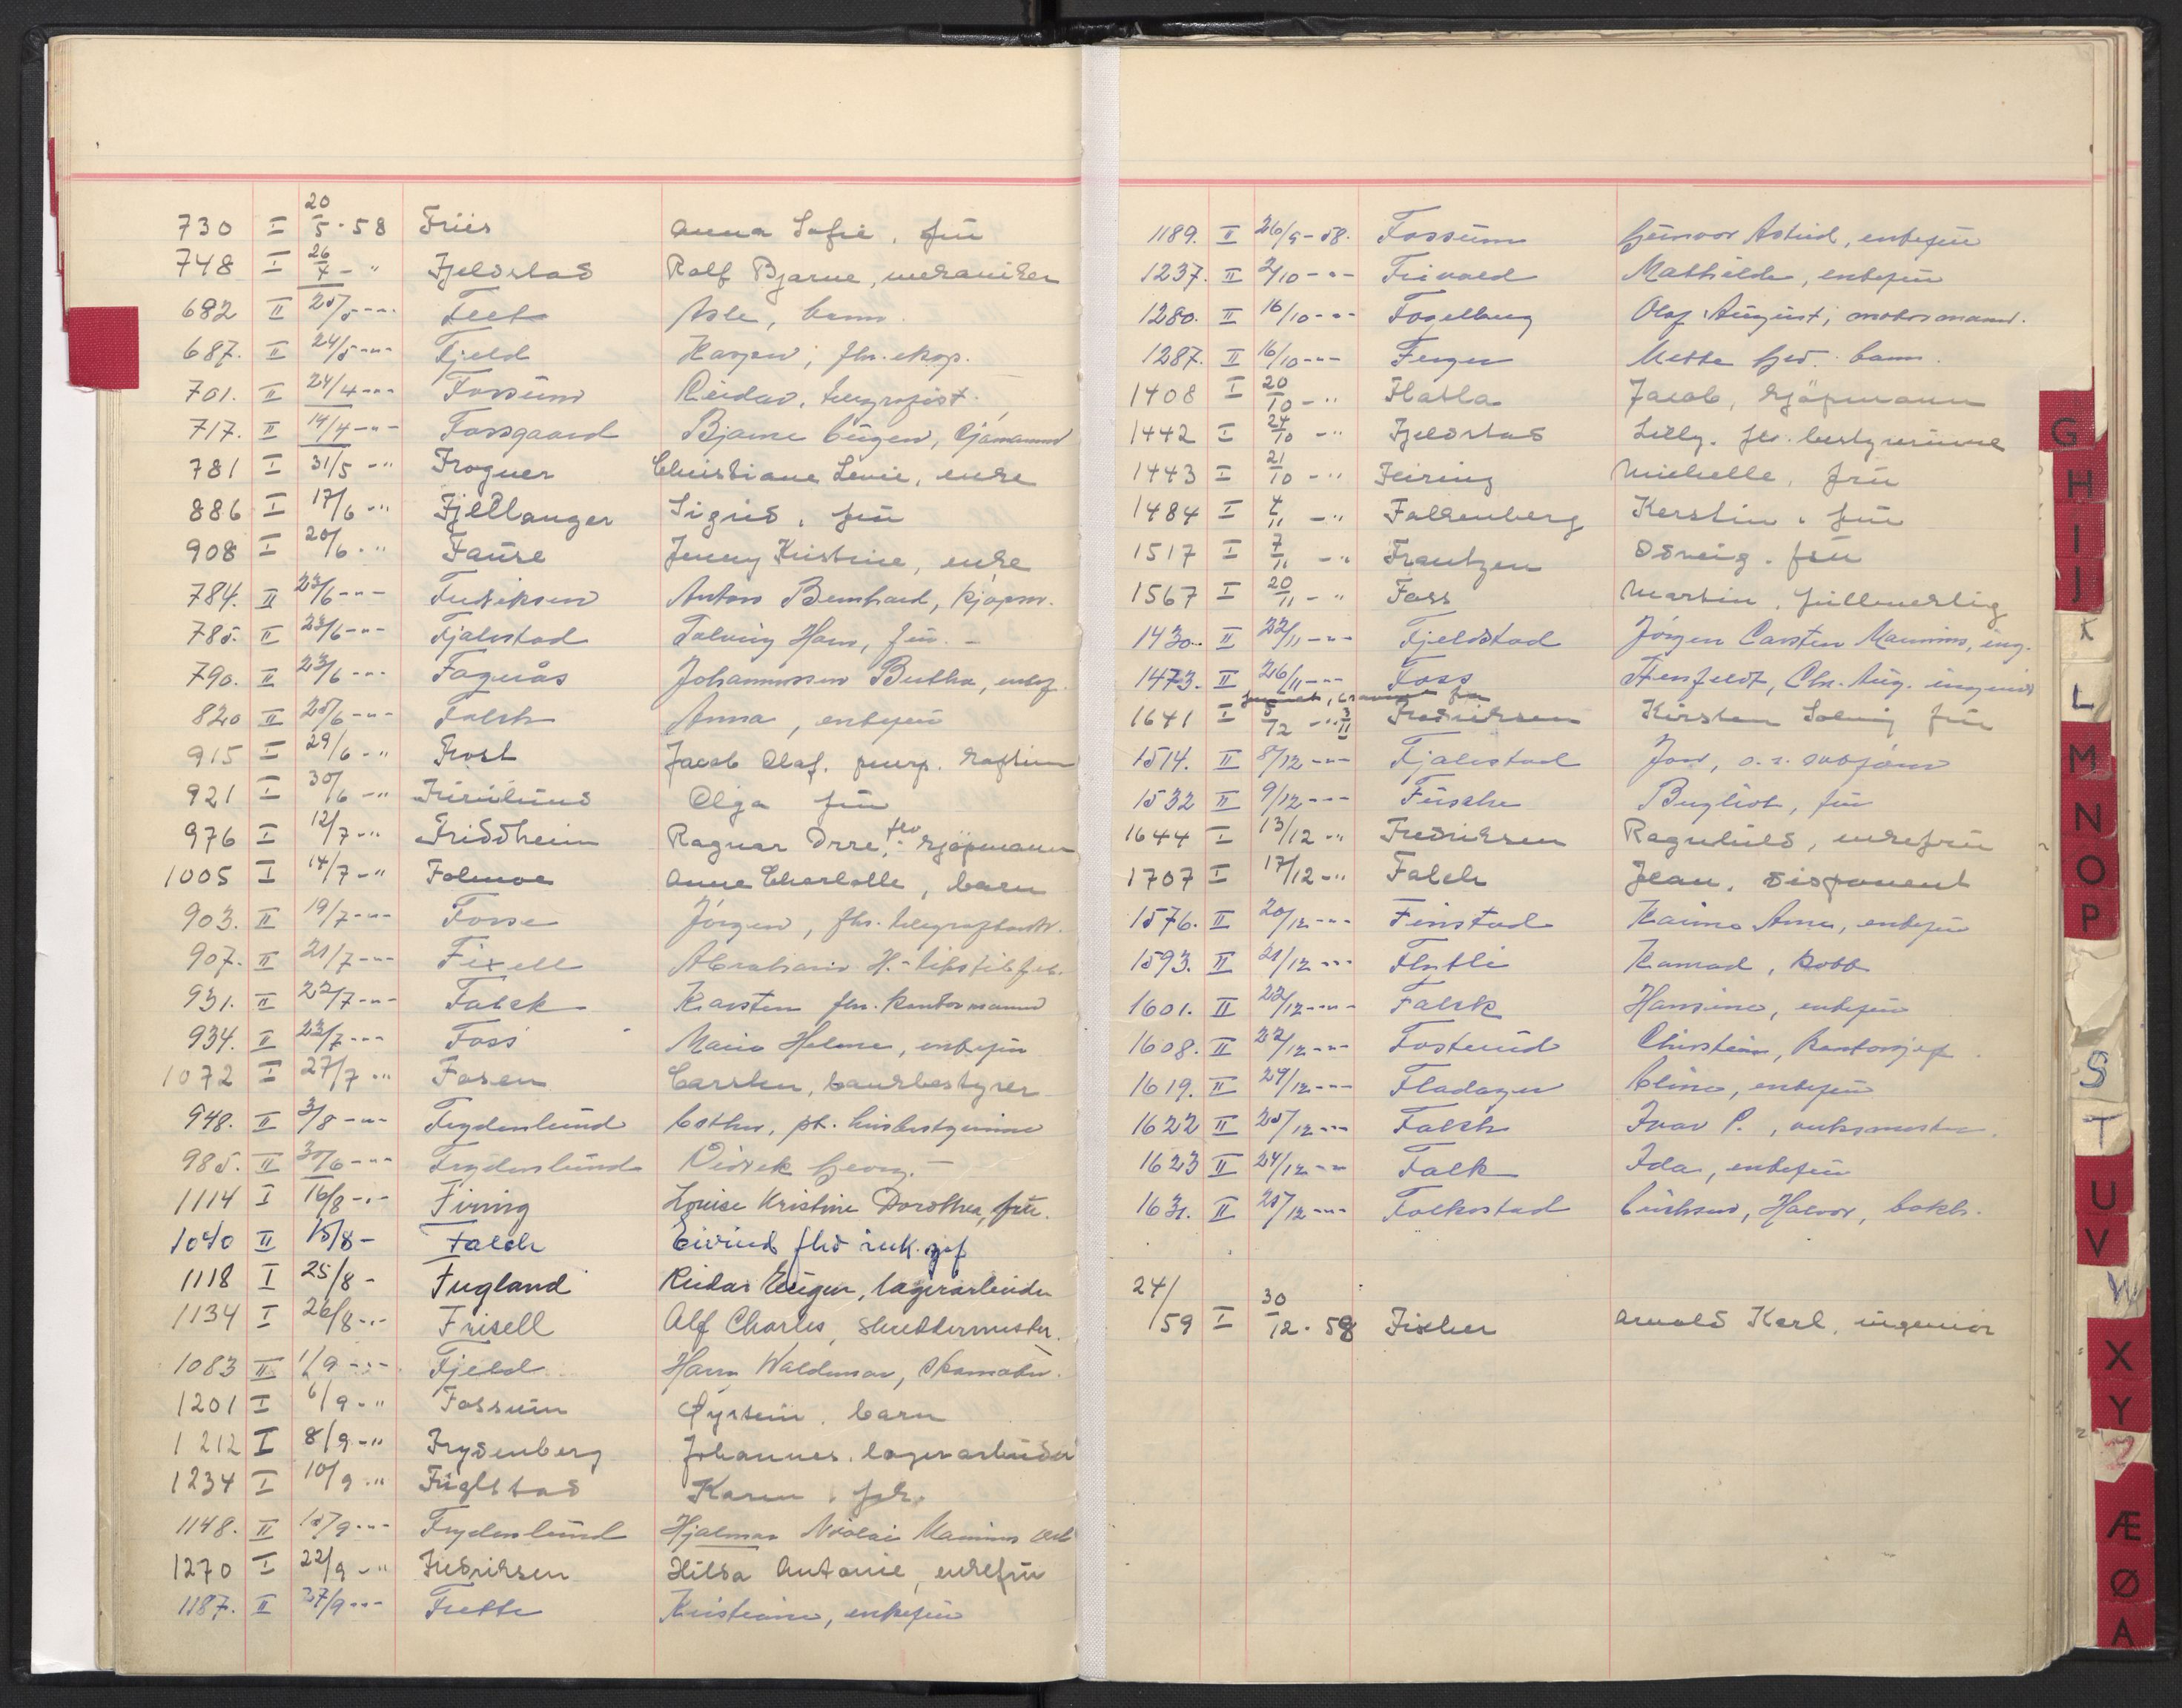 730 I 20/5-58 Friis Anna Sofie, frü
748 I 26/4 - " Fjeldstad Rolf Bjarne, mekaniker
682 II 25/5 -"- Teet Asle, barn.
687. II 24/5 -"- Fjeld Kasper, fhv. eksp.
701. II 24/4 -"- Fossüm Reidar, telegrafist.
717. II 14/4 -"- Fossgaard Bjarne Eügen, sjømannd
781 I 31/5 -" Frogner Christiane Levie, enke
886 I 17/6 -" Fjellanger Sigrid, frü
908 I 20/6 -" Fauske Jenny Kristine, enke
784. II 23/6 -"- Fredriksen Anton Bernhard, kjøpm.
785. II 23/6 -"- Fjalestad Solveig Hans, frü.
790. II 23/6 -"- Fagerås Johannessen Bertha, enkef.
820 II 25/6 -"- Falch Anna, enkefrü
915 I 29/6 -" Frost Jacob Olaf, pens. kaptein
921 I 30/6 -" Olga frü
976 I 12/7 -" Friddheim Ragnar Orre, fhv. kjøpmann
1005 I 14/7 -" Folmoe Anne Charlotte, barn
903. II 19/7 -"- Fosse Jörgen, fhv. telegrafbest.
907. II 21/7 -"- Fixell Abraham H.
931. II 22/7 -"- Falck Karsten fhv. kontormannd
934. II 23/7 -"- Foss Marie Helene, enkefrü
1072 I 27/7 -" Fosen Carsten, bankbestyrer
948. II 3/8 -"- Frydenlünd Esther, pt. hüsbestyrerinne
985. II 30/6 -"- Frydenlünd Didrik Georg.
1114 I 16/8 -"- Firing Louise Kristine Dorothea, frü.
1040 II 15/8 - Falch Eivind fhv ink.sjef
1118 I 25/8 - Fugland Reidar Eügen, lagerarbeider
1134 I 26/8 -"- Frisell Alf Charles, skreddermester.
1083 II 1/9 -"- Fjeld Harry Waldemar, skomaker.
1201 I 6/9 -" Fossüm Øystein, barn
1212 I 8/9 -" Frydenberg Johannes, lagerarbeider
1234 I 10/9 -" Füglstad Karen, frk.
1148. II 15/9 -"- Frydenlünd Hjalmar Nicolai Marinius
1270 I 22/9 -" Fredriksen Hilda Antonie, enkefrü
1187. II 27/9 -"- Frette Kristiane, enkefrü
1189. II 26/9-58. Fossüm Günvor Astrid, enkefrü
1237. II 2/10 -"- Frivold Mathilde, enkefrü
1280. II 16/10 -"- Fogelberg Olaf Aügüst, motormannd.
1287. II 16/10 -"- Ferger Mette Ged. barn.
1408 I 20/10 -" Flatla Jacob, kjøpmann
1442 I 24/10 -" Fjeldstad Lilly, fhv. bestyrerinne
1443 I 21/10 -" Feiring Michelle, frü
1484 I 4/11 -" Falkenberg Kerstin, frü
1517 I 7/11 -" Frantzen Solveig, frü
1567 I 20/11 -" Foss Martin, füllmektig
1430. II 22/11 -"- Fjeldstad Jörgen Carsten Marinius, ing.
1473. II 26/11 -"- Foss Stenfeldt, Chr. Aüg. ingeniør
1641 I 5/12 -" 3/11 Fredriksen Kirsten Solveig frü
1514. II 8/12 -"- Fjalestad Jon, o.r. sakfører
1532 II 9/12 -"- Füsche Bergliot, frü
1644 I 13/12 -" Fredriksen Ragnhild, enkefrü
1707 I 17/12 -" Falch Jean, disponent
1576. II 20/12 -"- Finstad Anna, enkefrü
1593. II 21/12 -"- Flatli Konrad, kobb
1601. II 22/12 -"- Falck Hansine, enkefrü
1608. II 22/12 -"- Fosterüd Christian, kontorsjef.
1619. II 24/12 -"- Fladager Eline, enkefrü
1622 II 25/12 -"- Falch Ivar P., müksmester.
1623 II 24/12 -"- Falk Ida, enkefrü
1631. II 25/12 -"- Folkestad Erichsen, Halvor, bokh.
24/
/59 I 30/12-58 Fischer Arnold Karl, ingeniør
G
H
I
J
K
L
M
N
O
P
S
T
U
V
W
X
Y
Z
Æ
Ø
A